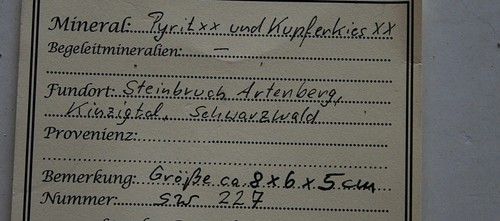 Mineral: Pyrit xx und Kupferkies XX
Begeleitmineralien: —
Fundort: Steinbruch Artenberg,
Kinzigtal, Schwarzwald
Provenienz:
Bemerkung: Größe ca 8 x 6 x 5 cm
Nummer: sw 227